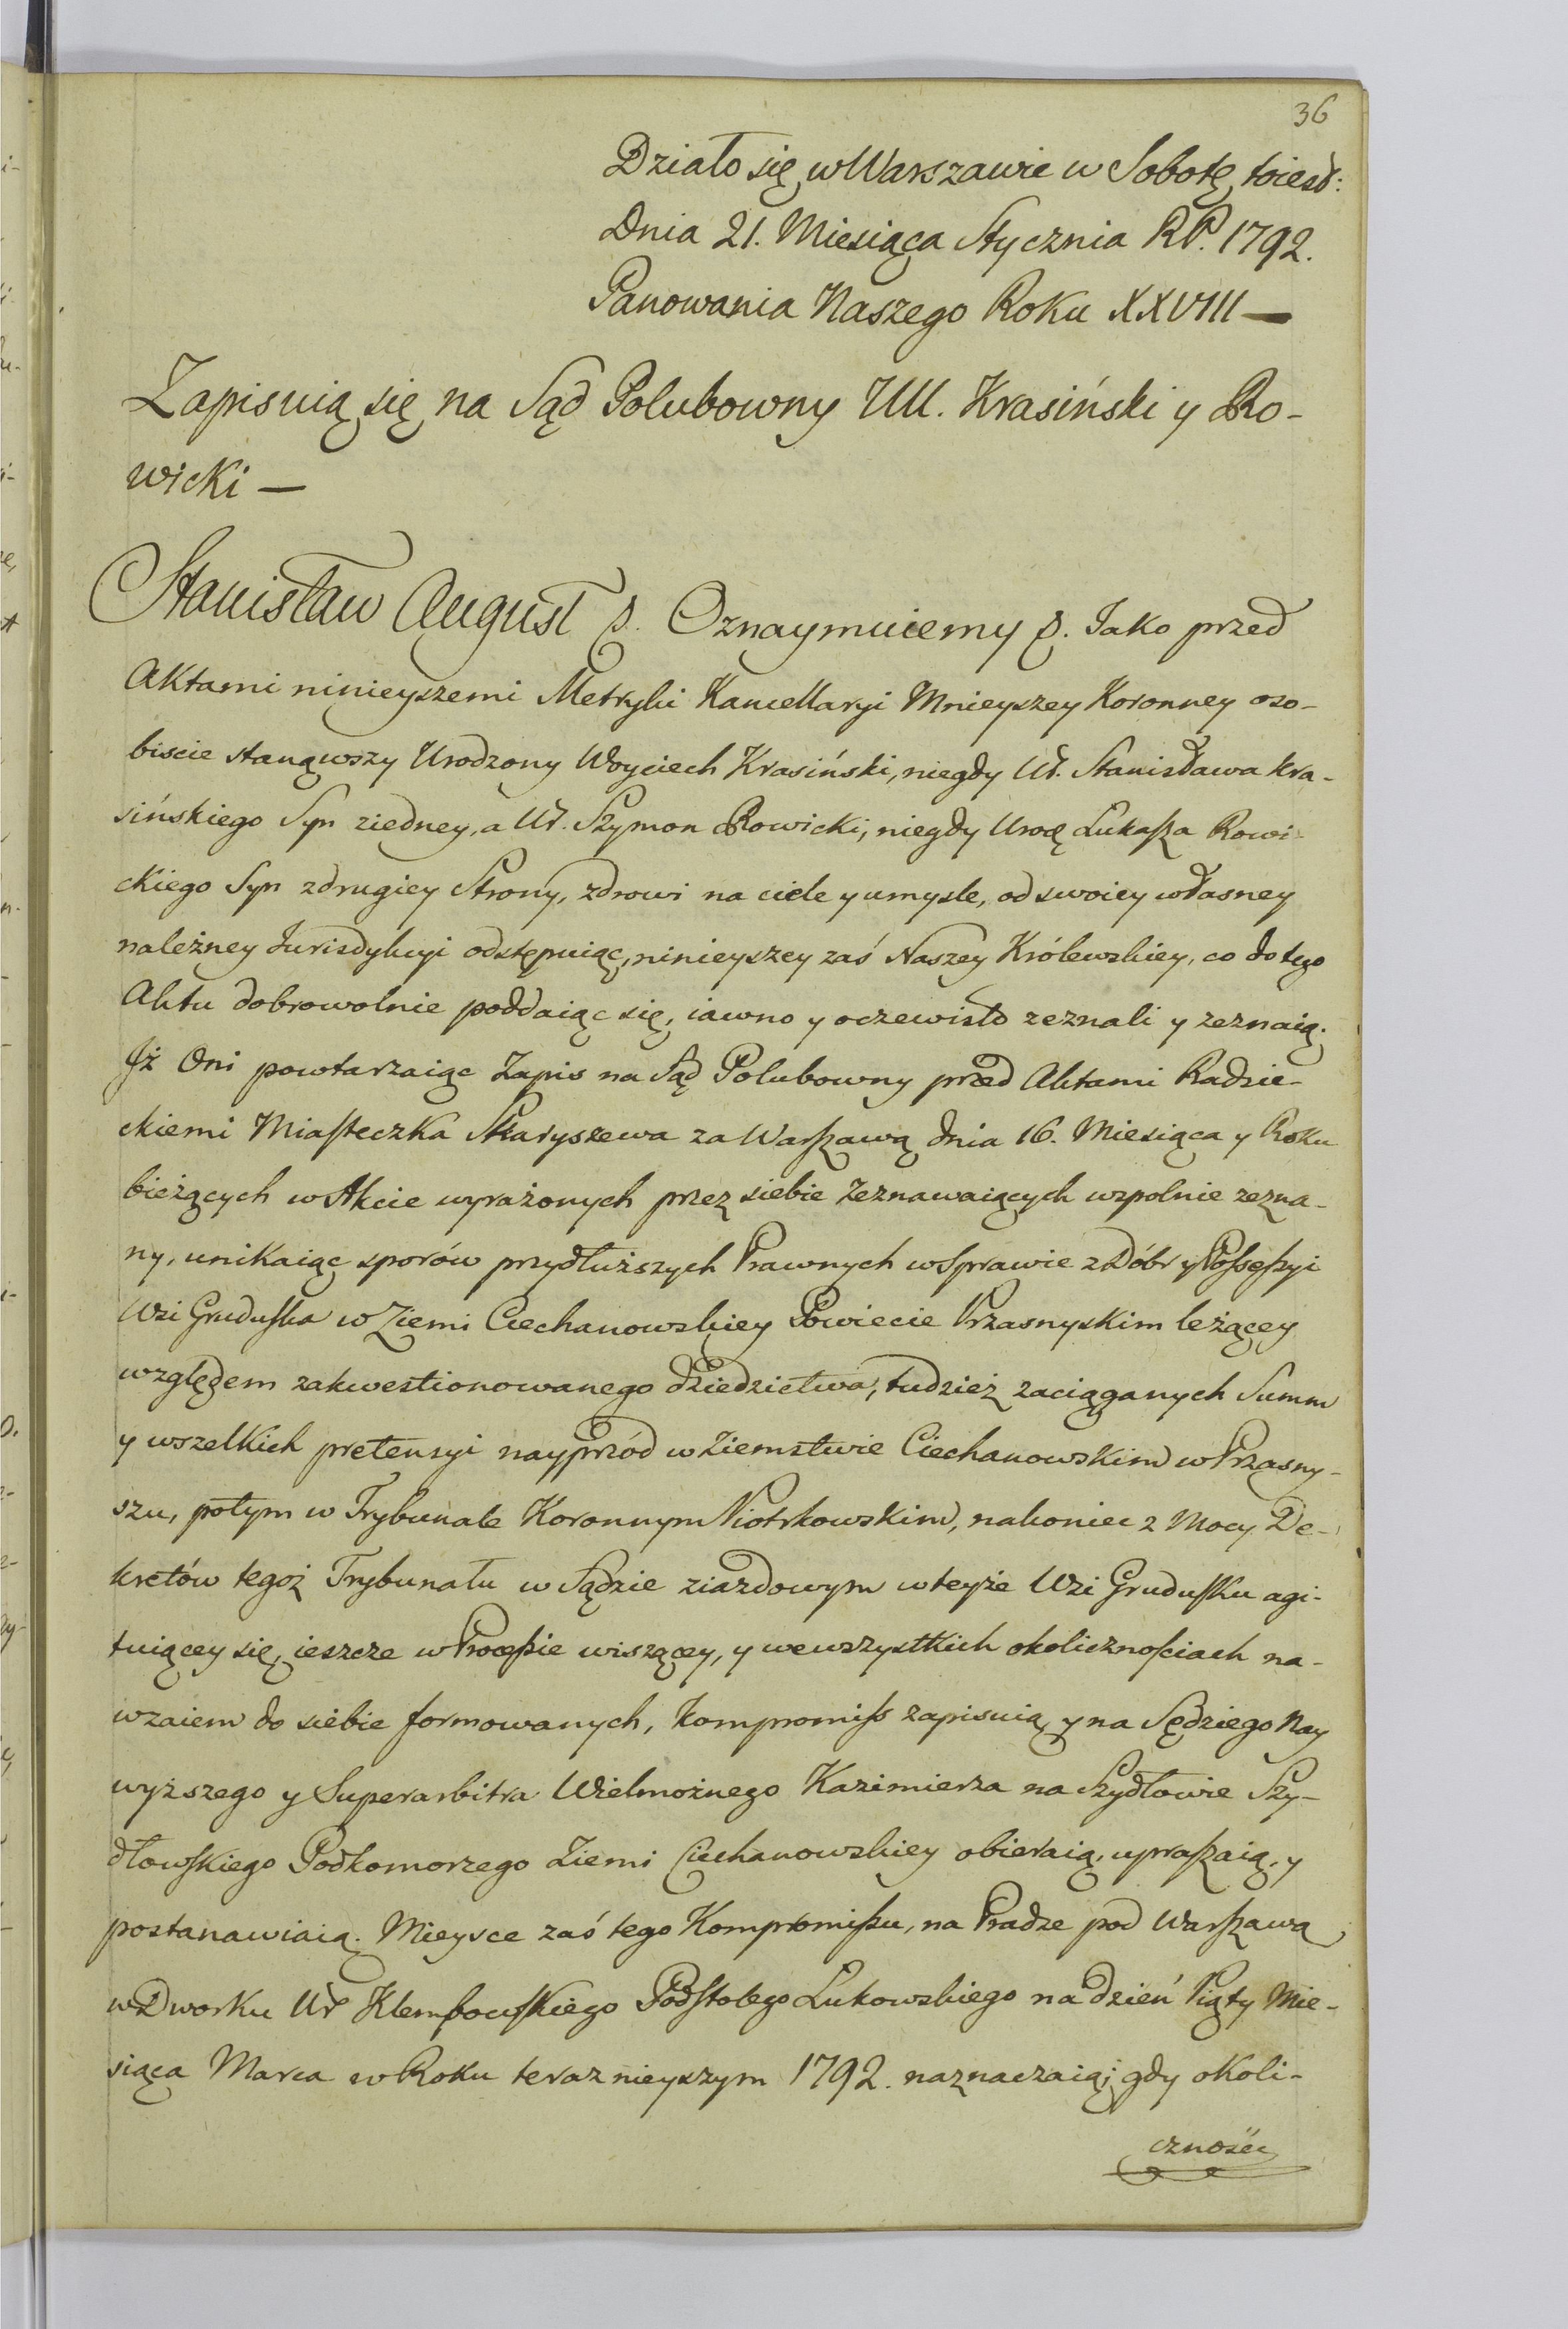 36
Działo się w Warszawie w Sobotę toiest:
Dnia 21. Miesiąca Stycznia RP. 1792.
Panowania Naszego Roku XXVIII —
Zapisuią się na Sąd Polubowny UU. Krasiński y Ro-
wicki —
Stanisław August &. Oznaymuiemy &. Jako przed
Aktami ninieyszemi Metryki Kancellaryi Mnieyszey Koronney oso-
biscie stanąwszy Urodzony Woyciech Krasiński, niegdy Ur. Stanisława Kra-
sińskiego Syn ziedney, a Ur. Szymon Rowicki, niegdy Urodz Lukasza Rowi-
ckiego Syn zdrugiey Strony, zdrowi na ciele y umysle, od swoiey własney
należney Jurisdykcyi odstępuiąc, ninieyszey zaś Naszey Królewskiey, co do tego
Aktu dobrowolnie poddaiąc się, iawno y oczewisto zeznali y zeznaią.
Jż Oni powtarzaiąc Zapis na Sąd Polubowny przed Aktami Radzie-
ckiemi Miasteczka Skaryszewa za Warszawą dnia 16. Miesiąca y Roku
bieżących w Akcie wyrażonych przez siebie Zeznawaiących wspolnie zezna-
ny, unikaiąc sporów przydłuższych Prawnych w Sprawie z Dóbr y Possessyi
Wsi Gruduska w Ziemi Ciechanowskiey Powiecie Przasnyskim leżącey
względem zakwestionowanego dziedzictwa, tudzież zaciąganych Summ
y wszelkich pretensyi nayprzód w Ziemstwie Ciechanowskim w Przasny-
szu, potym w Trybunale Koronnym Piotrkowskim, nakoniec z Mocy De-
kretów tegoż Trybunału w Sądzie ziazdowym w teyże Wsi Grudusku agi-
tuiącey się, ieszcze w Processie wiszącey, y wewszystkich okolicznościach na-
wzaiem do siebie formowanych, kompromiss zapisuią y na Sędziego Nay
wyższego y Superarbitra Wielmożnego Kazimierza na Szydłowie Szy-
dłowskiego Podkomorzego Ziemi Ciechanowskiey obieraią, upraszaią, y
postanawiaią. Mieysce zaś tego Kompromissu, na Pradze pod Warszawą
w Dworku Ur Klembowskiego Podstolego Lukowskiego na dzień Piąty Mie-
siąca Marca w Roku teraznieyszym 1792. naznaczaią; gdy okoli-
czność